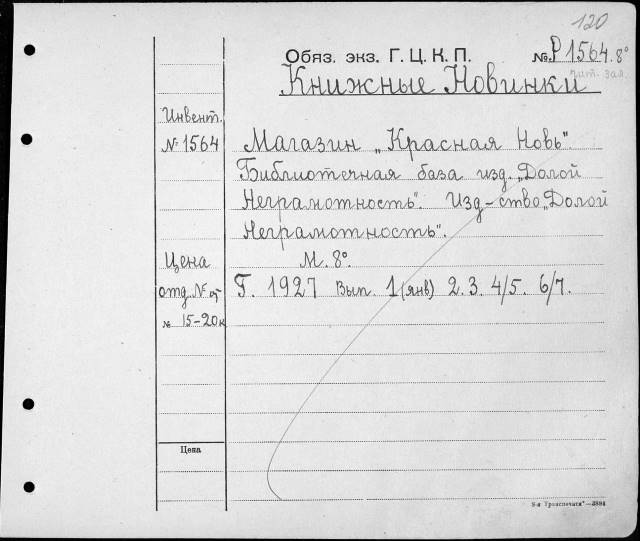 120
Обяз. экз. Г. Ц. К. П. № Р 1564. 8°
чит. зал.
Книжные Новинки
Инвент.
№ 1564
Магазин „Красная Новь".
Библиотечная база изд. „Долой
Неграмотность". Изд-ство „Долой
Неграмотность".
Цена
отд. №
№ 15-20к
М. 8°.
Г. 1927 Вып. 1 (янв) 2. 3. 4/5. 6/7.
Цена